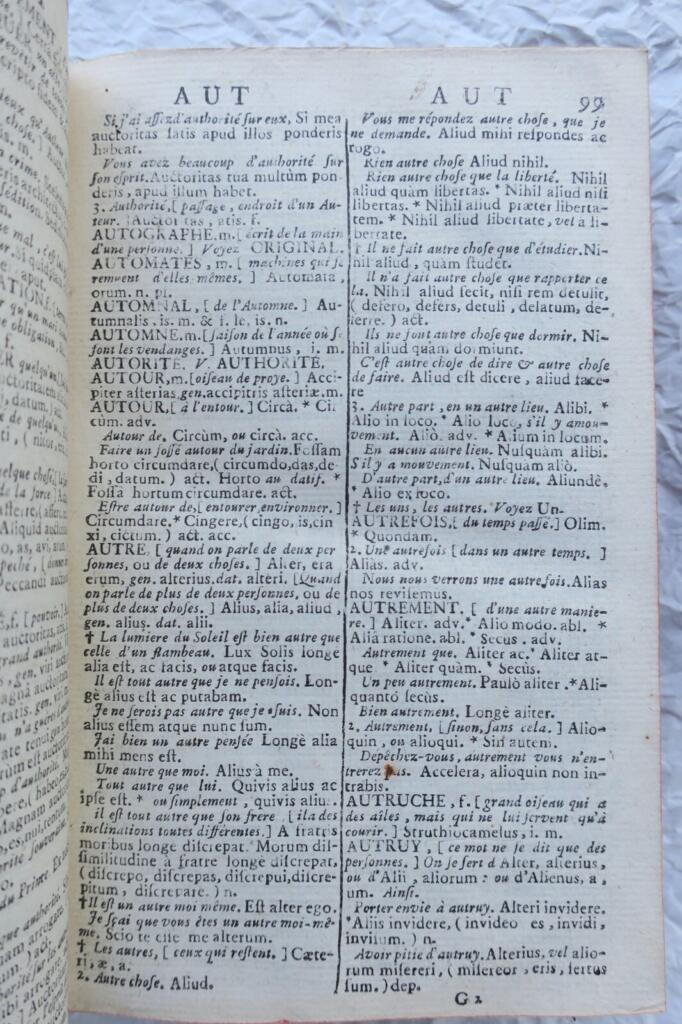 AUT
AUT 99
Si j'ai assez d'authorité sur eux, Si mea
auctoritas satis apud illos ponderis
habeat.
Vous avez beaucoup d'authorité sur
son esprit. Auctoritas tua multùm pon
deris, apud illum habet.
3. Authorité, [ passage, endroit d'un Au-
teur. ] Auctoritas, atis. f.
AUTOGRAPHE. m. [ écrit de la main
d'une personne. ] Voyez ORIGINAL.
AUTOMATES, m. [ machines qui se
remuent d'elles-mêmes. ] Automata,
orum. n. pl.
AUTOMNAL, [ de l'Automne. ] Au-
tumnalis, is. m. & f. le, is. n.
AUTOMNE. m. [ saison de l'année où se
font les vendanges. ] Autumnus, i. m.
AUTORITE. V. AUTHORITE.
AUTOUR, m. [ oiseau de proye. ] Acci-
piter asterias, gen. accipitris asteriæ. m.
AUTOUR, [ à l'entour. ] Circà. * Cir
cùm. adv.
Autour de. Circùm, ou circà. acc.
Faire un fossé autour du jardin. Fossam
horto circumdare, ( circumdo, das, de-
di, datum. ) act. Horto au datif. *
Fossâ hortum circumdare. act.
Estre autour de, [ entourer, environner. ]
Circumdare. * Cingere, ( cingo, is, cin
xi, cictum. ) act. acc.
AUTRE, [ quand on parle de deux per
sonnes, ou de deux choses. ] Alter, era
erum, gen. alterius. dat. alteri. [ Quand
on parle de plus de deux personnes, ou de
plus de deux choses. ] Alius, alia, aliud,
gen. alius. dat. alii.
† La lumiere du Soleil est bien autre que
celle d'un flambeau. Lux Solis longè
alia est, ac facis, ou atque facis.
Il est tout autre que je ne pensois. Lon-
gè alius est ac putabam.
Je ne serois pas autre que je suis. Non
alius essem atque nunc sum.
J'ai bien un autre pensée Longè alia
mihi mens est.
Une autre que moi. Alius à me.
Tout autre que lui. Quivis alius ac
ipse est. * ou simplement, quivis alius.
il est tout autre que son frere [ il a des
inclinations toutes différentes. ] A fratris
moribus longè discrepat. Morum dis-
similitudine à fratre longè discrepat,
( discrepo, discrepas, discrepui, discre-
pitum, discrepare. ) n.
† Il est un autre moi même. Est alter ego.
Je sçai que vous êtes un autre moi-mê-
me. Scio te esse me alterum.
† Les autres, [ ceux qui restent. ] Cæte-
ri, æ, a.
2. Autre chose. Aliud.
Vous me répondez autre chose, que je
ne demande. Aliud mihi respondes ac
rogo.
Rien autre chose Aliud nihil.
Rien autre chose que la liberté. Nihil
aliud quàm libertas. * Nihil aliud nisi
libertas. * Nihil aliud præter liberta-
tem. * Nihil aliud libertate, vel à li-
bertate.
† Il ne fait autre chose que d'étudier. Ni-
hil aliud, quàm studet.
Il n'a fait autre chose que rapporter ce
la. Nihil aliud fecit, nisi rem detulit,
( defero, defers, detuli, delatum, de-
ferre. ) act.
Ils ne font autre chose que dormir. Ni-
hil aliud quàm dormiunt.
C'est autre chose de dire & autre chose
de faire. Aliud est dicere, aliud face-
re
3. Autre part, en un autre lieu. Alibi. *
Alio in loco. * Alio loco, s'il y a mou-
vement. Aliò. adv. * Alium in locum.
En aucun autre lieu. Nusquàm alibi.
S'il y a mouvement. Nusquàm aliò.
D'autre part, d'un autre lieu. Aliundè.
* Alio ex loco.
† Les uns, les autres. Voyez Un.
AUTREFOIS, [ du temps passé. ] Olim.
* Quondam.
2. Une autrefois [ dans un autre temps. ]
Aliàs. adv.
Nous nous verrons une autre fois. Alias
nos revisemus.
AUTREMENT, [ d'une autre manie-
re. ] Aliter. adv. * Alio modo. abl. *
Aliâ ratione. abl. * Secus. adv.
Autrement que. Aliter ac. * Aliter at-
que * Aliter quàm. * Secùs.
Un peu autrement. Paulò aliter. * Ali-
quantò secùs.
Bien autrement. Longè aliter.
2. Autrement, [ sinon, sans cela. ] Alio-
quin, ou alioqui. * Sin autem.
Depêchez-vous, autrement vous n'en-
trerez pas. Accelera, alioquin non in-
trabis.
AUTRUCHE, f. [ grand oiseau qui a
des aîles, mais qui ne lui servent qu'à
courir. ] Struthiocamelus, i. m.
AUTRUY, [ ce mot ne se dit que des
personnes. ] On se sert d'Alter, alterius,
ou d'Alii, aliorum : ou d'Alienus, a,
um. Ainsi.
Porter envie à autruy. Alteri invidere.
* Aliis invidere, ( invideo es, invidi,
invisum. ) n.
Avoir pitié d'autruy. Alterius, vel alio-
rum misereri, ( misereor, eris, sertus
sum. ) dep.
G 2